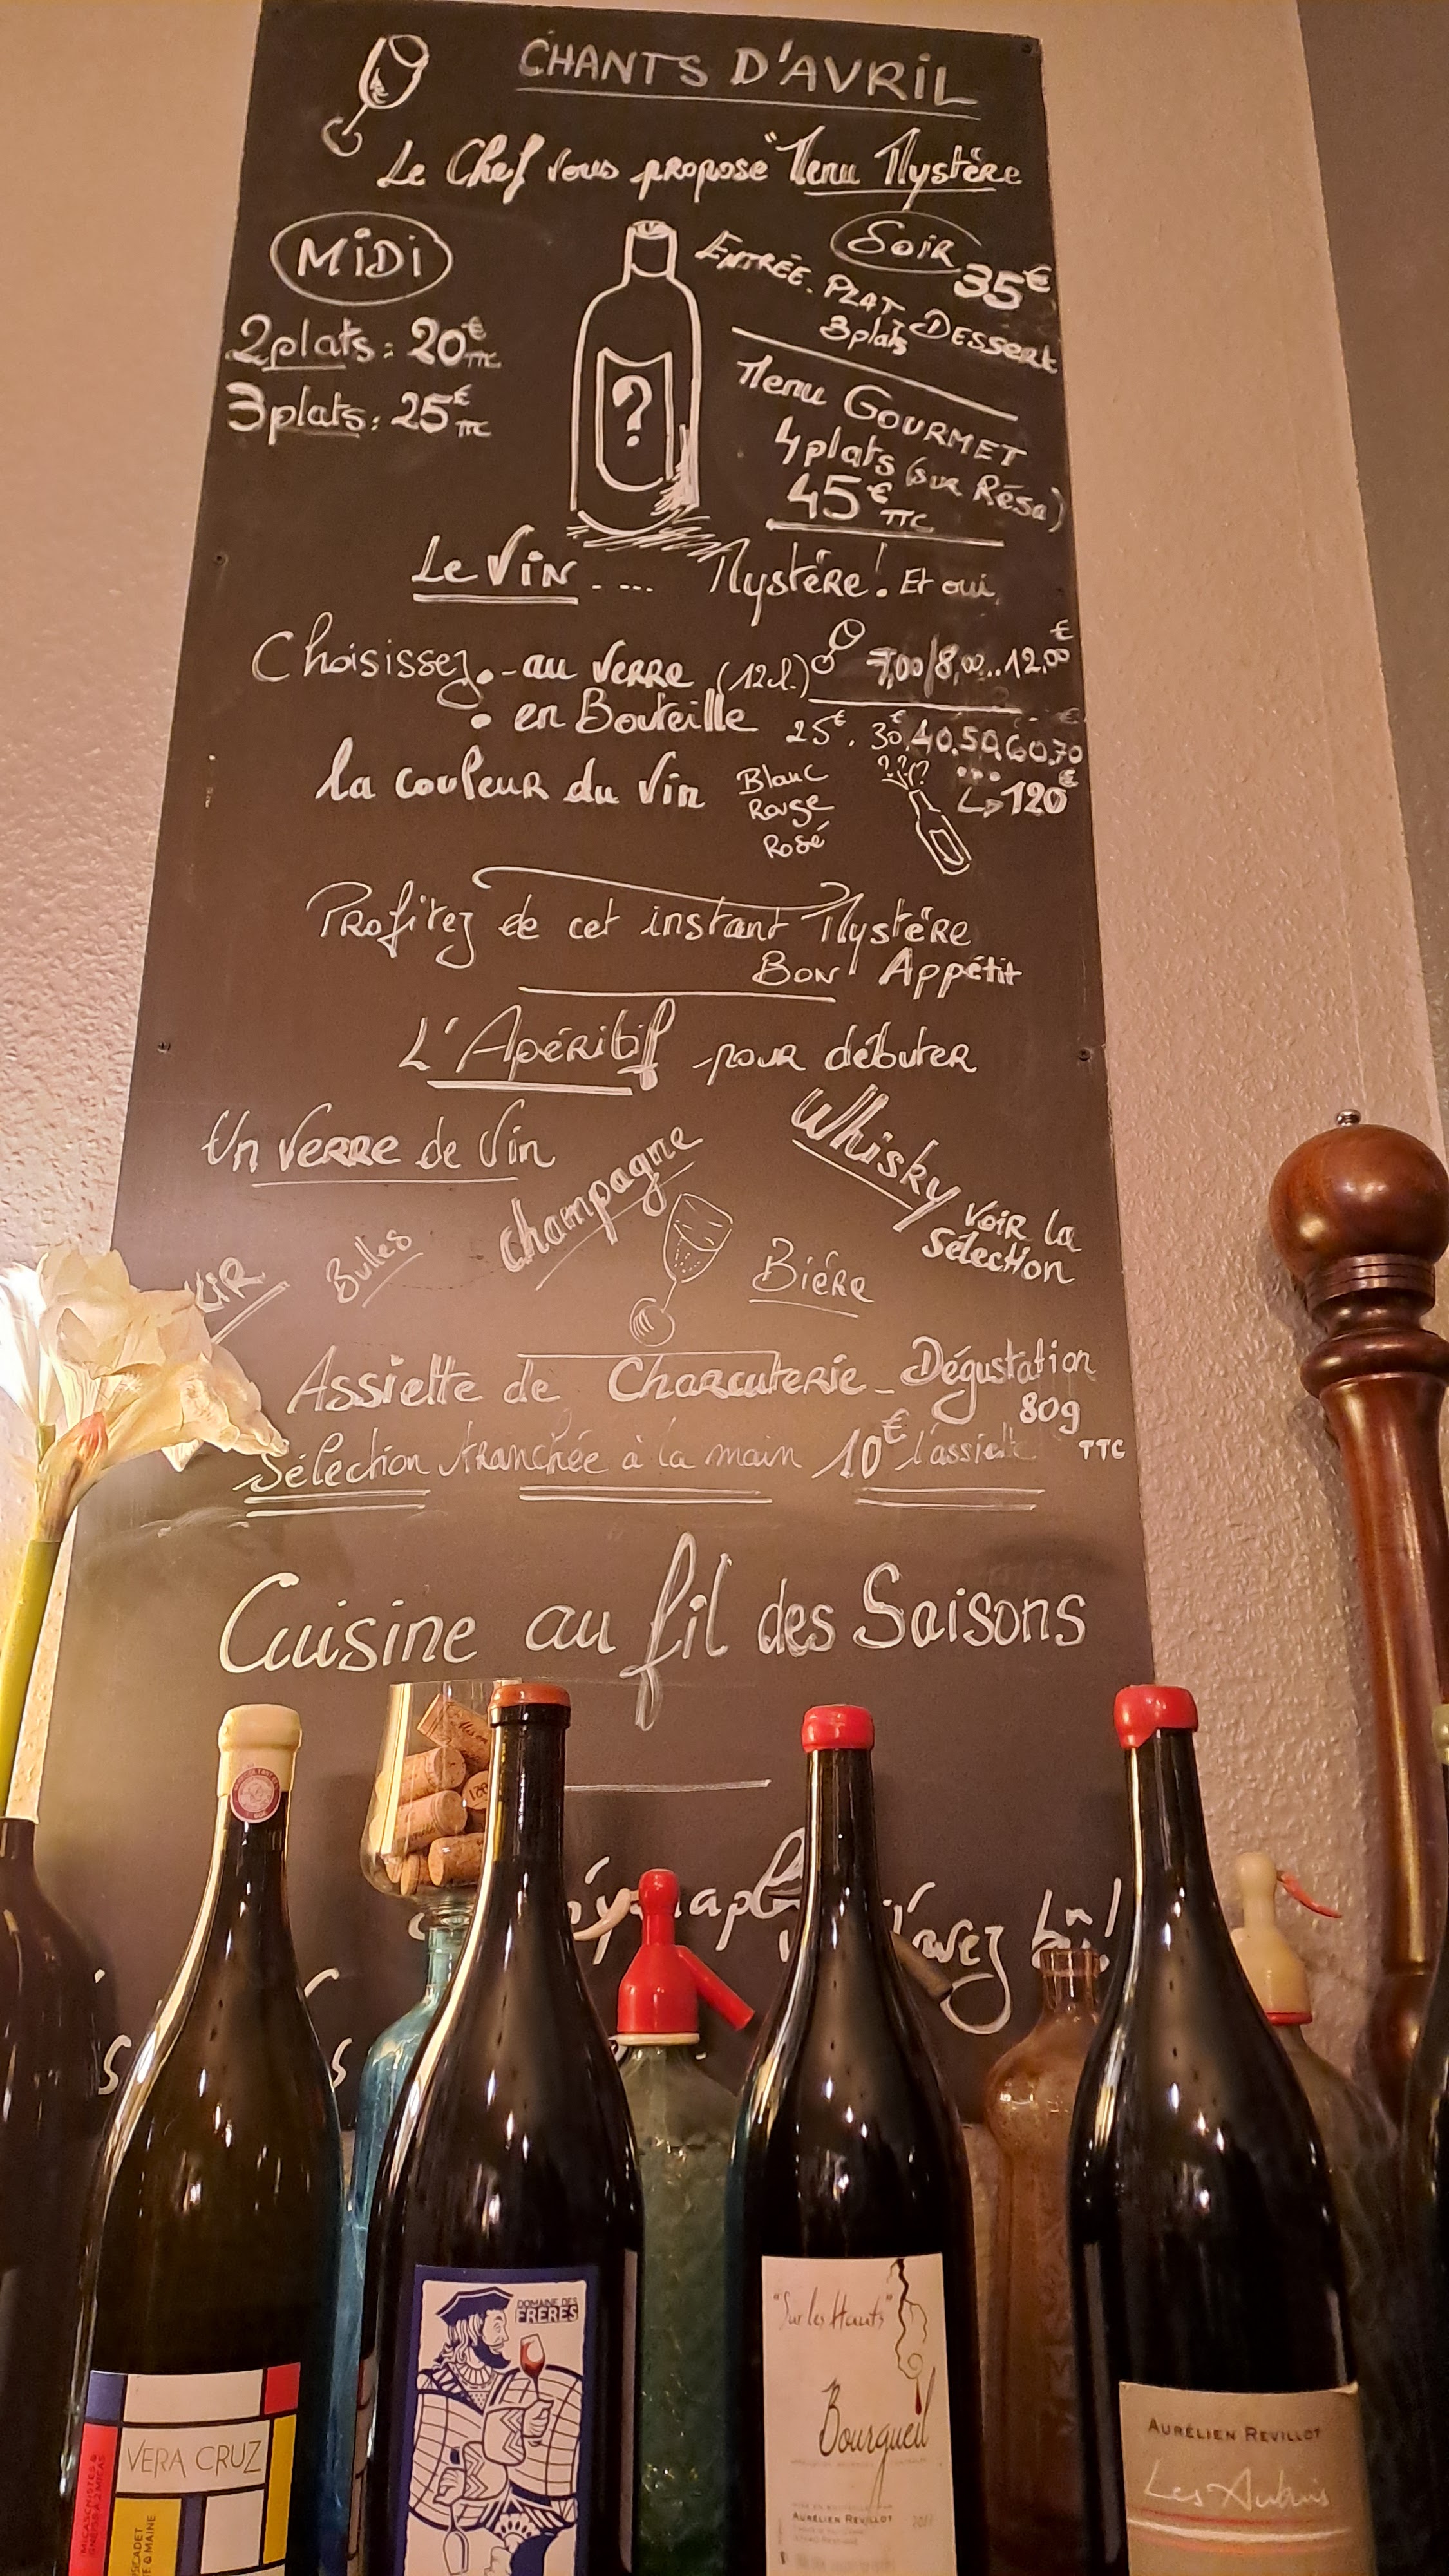 CHANTS D'AVRIL
Le Chef vous propose "Menu Mystère
MIDI
2 plats : 20€ TTC
3 plats : 25€ TTC
?
SOIR
35€
ENTRÉE. PLAT. DESSERT
3 plats
Menu GOURMET
4 plats (sur Résa)
45€ TTC
Le Vin - ... Mystère ! Et oui
Choisissez - au verre (12cl.) 7,00/8,00...12,00€
• en Bouteille 25€, 30€, 40, 50, 60, 70€
... ↳ 120€
la couleur du Vin
Blanc
Rouge
Rosé
???
Profitez de cet instant Mystère
Bon Appétit
L'Apéritif pour débuter
Un verre de Vin
Champagne
Whisky voir la
sélection
KiR
Bulles
Bière
Assiette de Charcuterie - Dégustation
80g
Sélection tranchée à la main 10€ l'assiette TTC
Cuisine au fil des Saisons
VERA CRUZ
DOMAINE DES
FRÈRES
"Sur les Hauts"
Bourgueil
AURÉLIEN REVILLOT
AURÉLIEN REVILLOT
Les Aubuis